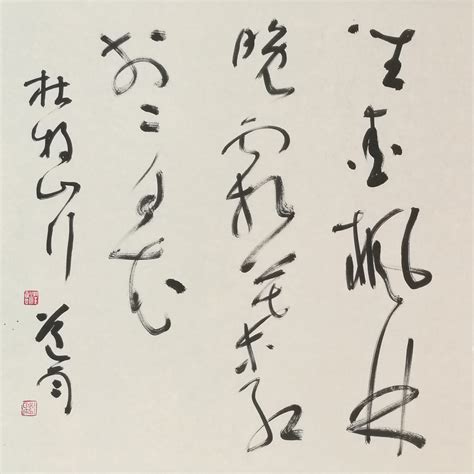 坐愛楓林
晚霜葉紅
於二月花
杜牧山行